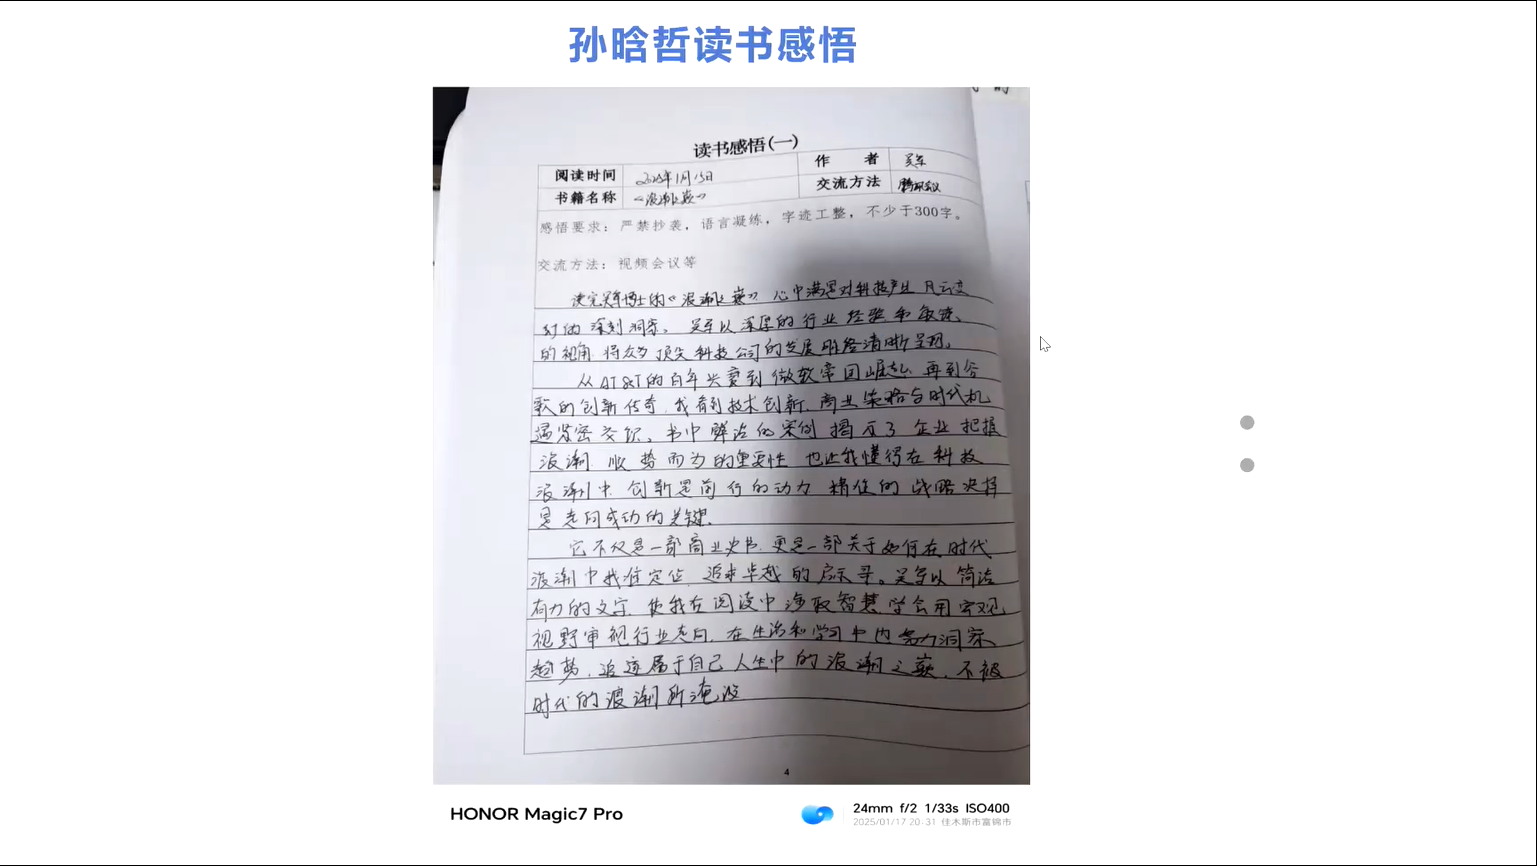 孙晗哲读书感悟
读书感悟(一)
阅读时间 2025年1月15日 作 者 吴军
书籍名称 《浪潮之巅》 交流方法 腾讯会议
感悟要求：严禁抄袭，语言凝练，字迹工整，不少于300字。
交流方法：视频会议等
读完吴军博士的《浪潮之巅》心中满是对科技产业风云变
幻的深刻洞察。吴军以深厚的行业经验和敏锐
的视角,将众多顶尖科技公司的发展脉络清晰呈现。
从AT&T的百年兴衰到微软帝国崛起,再到谷
歌的创新传奇,我看到技术创新、商业策略与时代机
遇紧密交织。书中鲜活的案例揭示了企业把握
浪潮、顺势而为的重要性,也让我懂得在科技
浪潮中,创新是前行的动力,精准的战略决择
是走向成功的关键。
它不仅是一部商业史书,更是一部关于如何在时代
浪潮中找准定位,追求卓越的启示录。吴军以简洁
有力的文字,使我在阅读中汲取智慧,学会用宏观
视野审视行业走向,在生活和学习中内努力洞察
趋势,追逐属于自己人生中的浪潮之巅,不被
时代的浪潮所淹没
4
HONOR Magic7 Pro
24mm f/2 1/33s ISO400
2025/01/17 20:31 佳木斯市富锦市